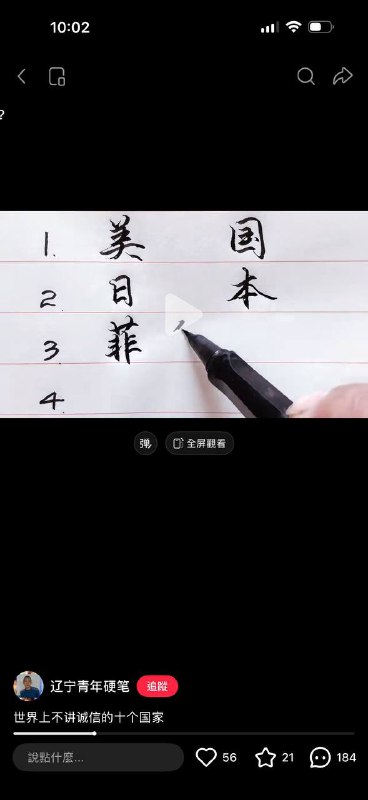 10:02
?
1. 美 国
2. 日 本
3 菲
4.
弹
全屏觀看
辽宁青年硬笔
追蹤
世界上不讲诚信的十个国家
說點什麼...
56
21
184